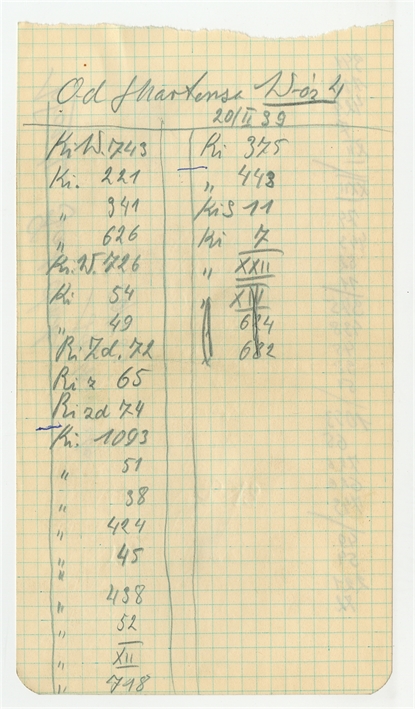 Od Martensa W-óz 4
20/II 39
Ki W. 743
Ki. 221
„ 341
„ 626
Ki. W. 726
Ki 54
„ 49
Ri Zd. 72
Ri z 65
Ri zd 74
Ki. 1093
„ 51
„ 38
„ 424
„ 45
„
„ 438
„ 52
„ XII
„ 718
Ki 375
„ 443
Ki S 11
Ki 7
„ XXII
„ XIII
„ 684
„ 682